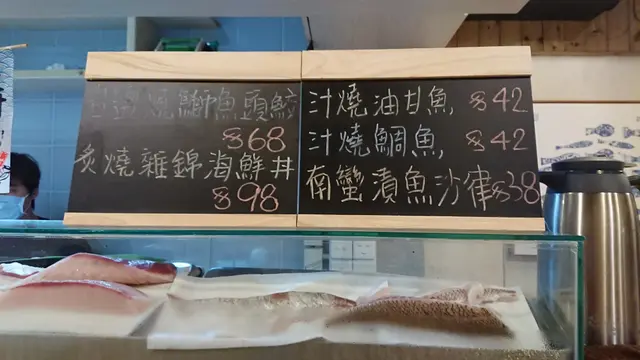 燒鰤魚頭鮫
$68
炙燒雜錦海鮮丼
$98
汁燒油甘魚 $42
汁燒鯛魚 $42
南蠻漬魚沙律 $38